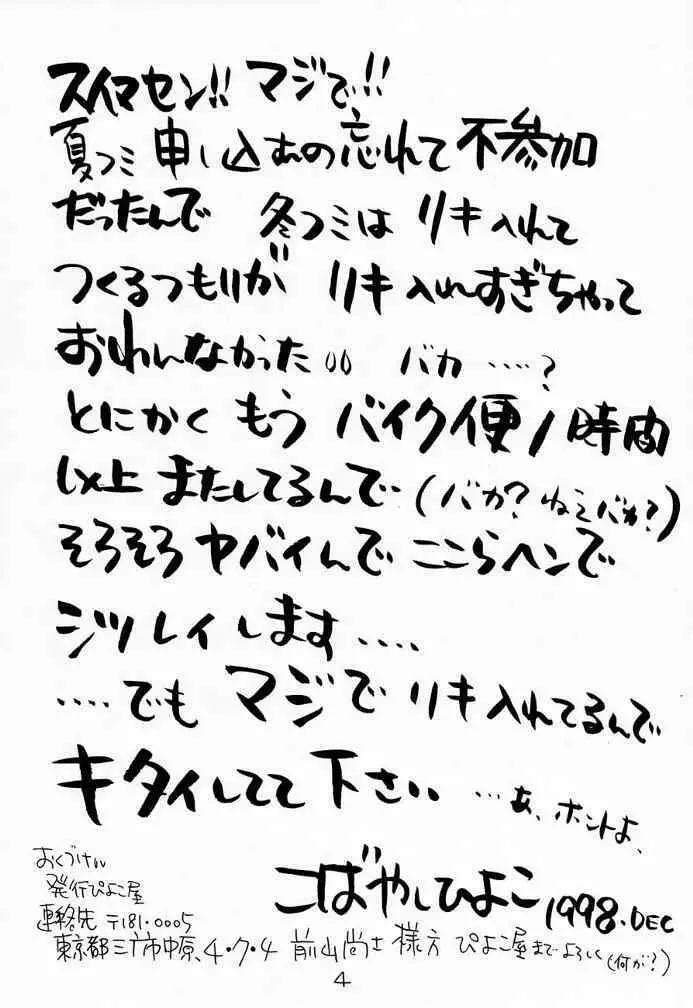 スイマセン!! マジで!!
夏コミ 申し込むの忘れて 不参加
だったんで 冬コミは リキ入れて
つくるつもりが リキ入れすぎちゃって
おわんなかった バカ ‥‥?
とにかく もう バイク便1時間
以上 またしてるんで (バカ? ねえバカ?)
そろそろ ヤバイんで ここらヘンで
シツレイします ‥‥
‥‥でも マジで リキ入れてるんで
キタイしてて 下さい …あ、ホントよ、
こばやしひよこ 1998.DEC
おくづけ
発行ぴよこ屋
連絡先 〒181-0005
東京都三鷹市中原、4・7・4 前山尚士 様方 ぴよこ屋までよろしく(何が?)
4